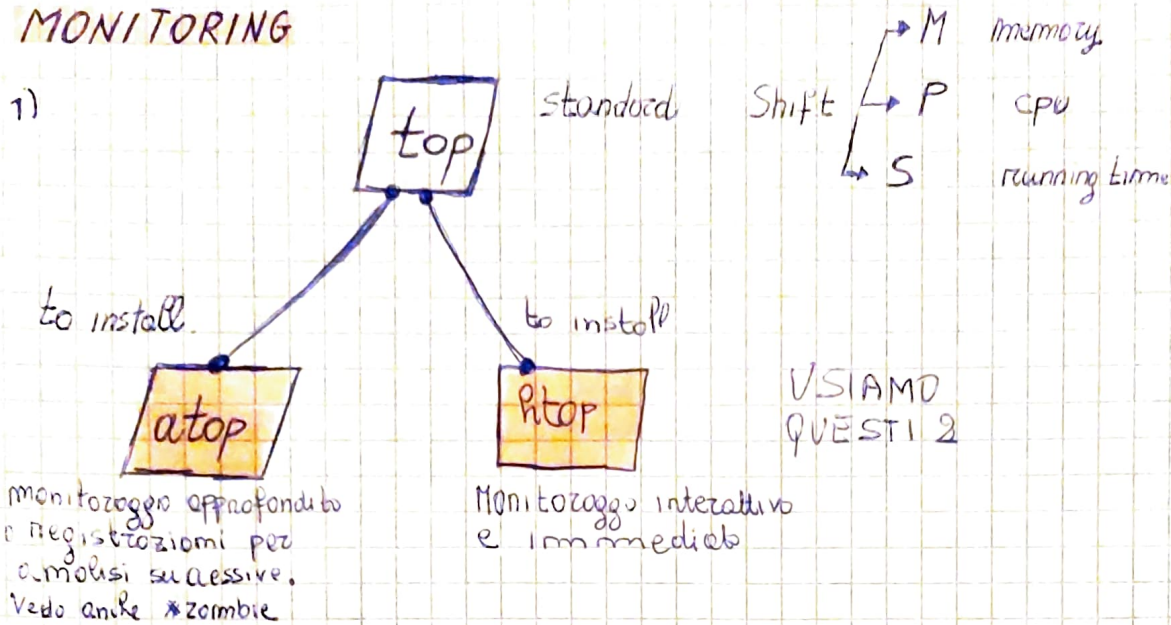 MONITORING
1)
top
standard
Shift
M memory
P cpu
S running time
to install
to install
atop
htop
USIAMO
QUESTI 2
monitoraggio approfondito
e registrazioni per
analisi successive.
Vedo anche *zombie
Monitoraggio interattivo
e immediato